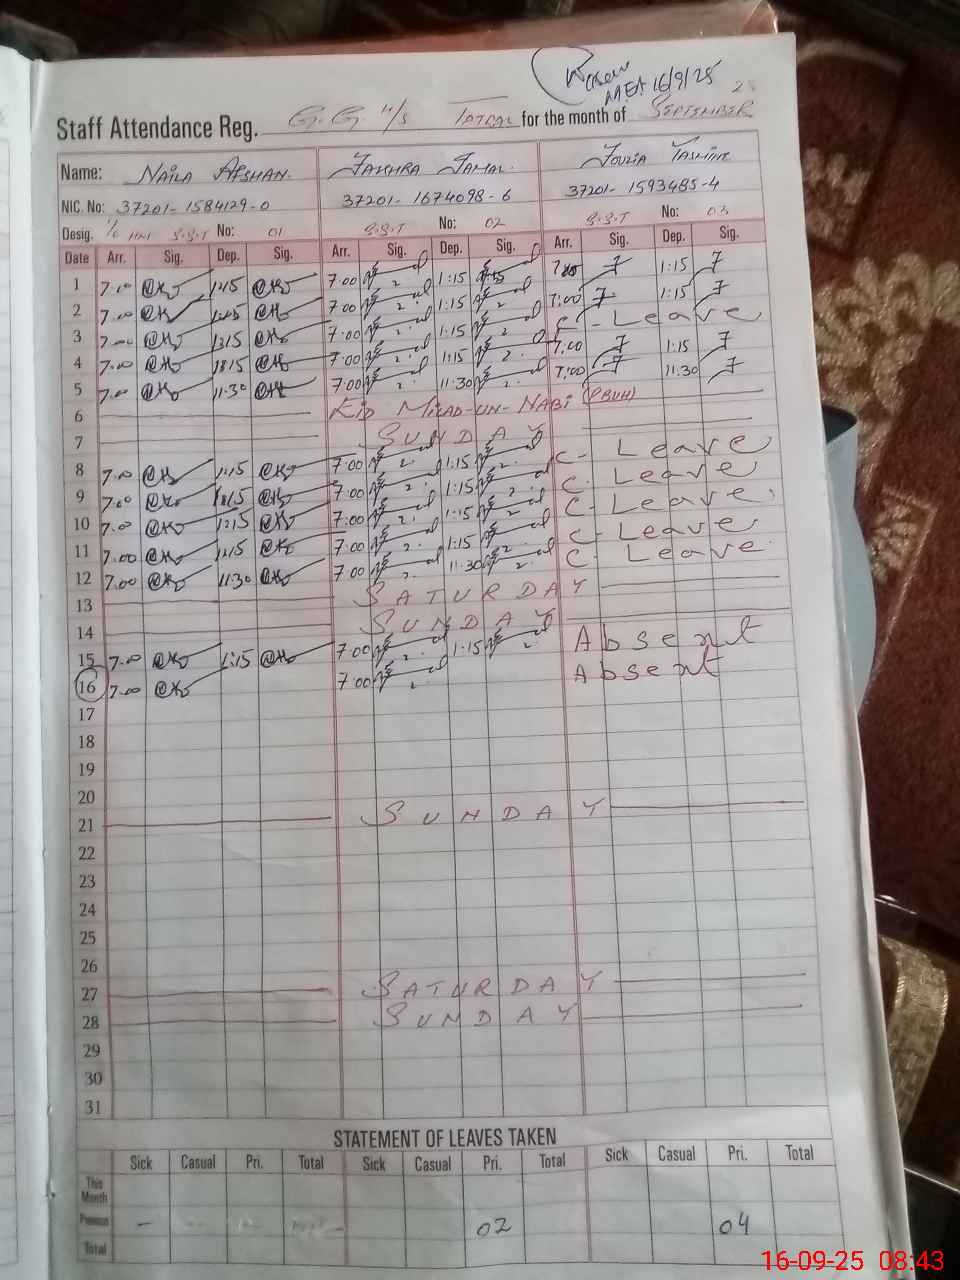 AEA 16/9/25
Staff Attendance Reg. G.G. H/S TATRAL for the month of SEPTEMBER 25
Name: NAILA AFSHAN. FAKHRA JAMAL. FOUZIA YASMINE
NIC. No: 37201-1584129-0 37201-1674098-6 37201-1593485-4
Desig. S.S.T No: 01 S.S.T No: 02 S.S.T No: 03
Date Arr. Sig. Dep. Sig. Arr. Sig. Dep. Sig. Arr. Sig. Dep. Sig.
1 7.00 7:00 1:15 1:15
2 7.00 7:00 1:15 7:00 1:15
3 7.00 7:00 1:15 C - Leave
4 7.00 7:00 1:15 7:00 1:15
5 7.00 11.30 7:00 11.30 7:00 11.30
6 EID MILAD-UN-NABI (PBUH)
7 SUNDAY
8 7.00 1:15 7:00 1:15 C. Leave
9 7.00 7:00 1:15 C. Leave
10 7.00 7:00 1:15 C. Leave
11 7.00 7:00 1:15 C. Leave
12 7.00 11.30 7:00 11.30 C. Leave
13 SATURDAY
14 SUNDAY
15 7.00 1:15 7:00 1:15 Absent
16 7.00 7:00 Absent
17
18
19
20
21 SUNDAY
22
23
24
25
26
27 SATURDAY
28 SUNDAY
29
30
31
STATEMENT OF LEAVES TAKEN
Sick Casual Pri. Total Sick Casual Pri. Total Sick Casual Pri. Total
This Month
Previous - 02 04
Total
16-09-25 08:43